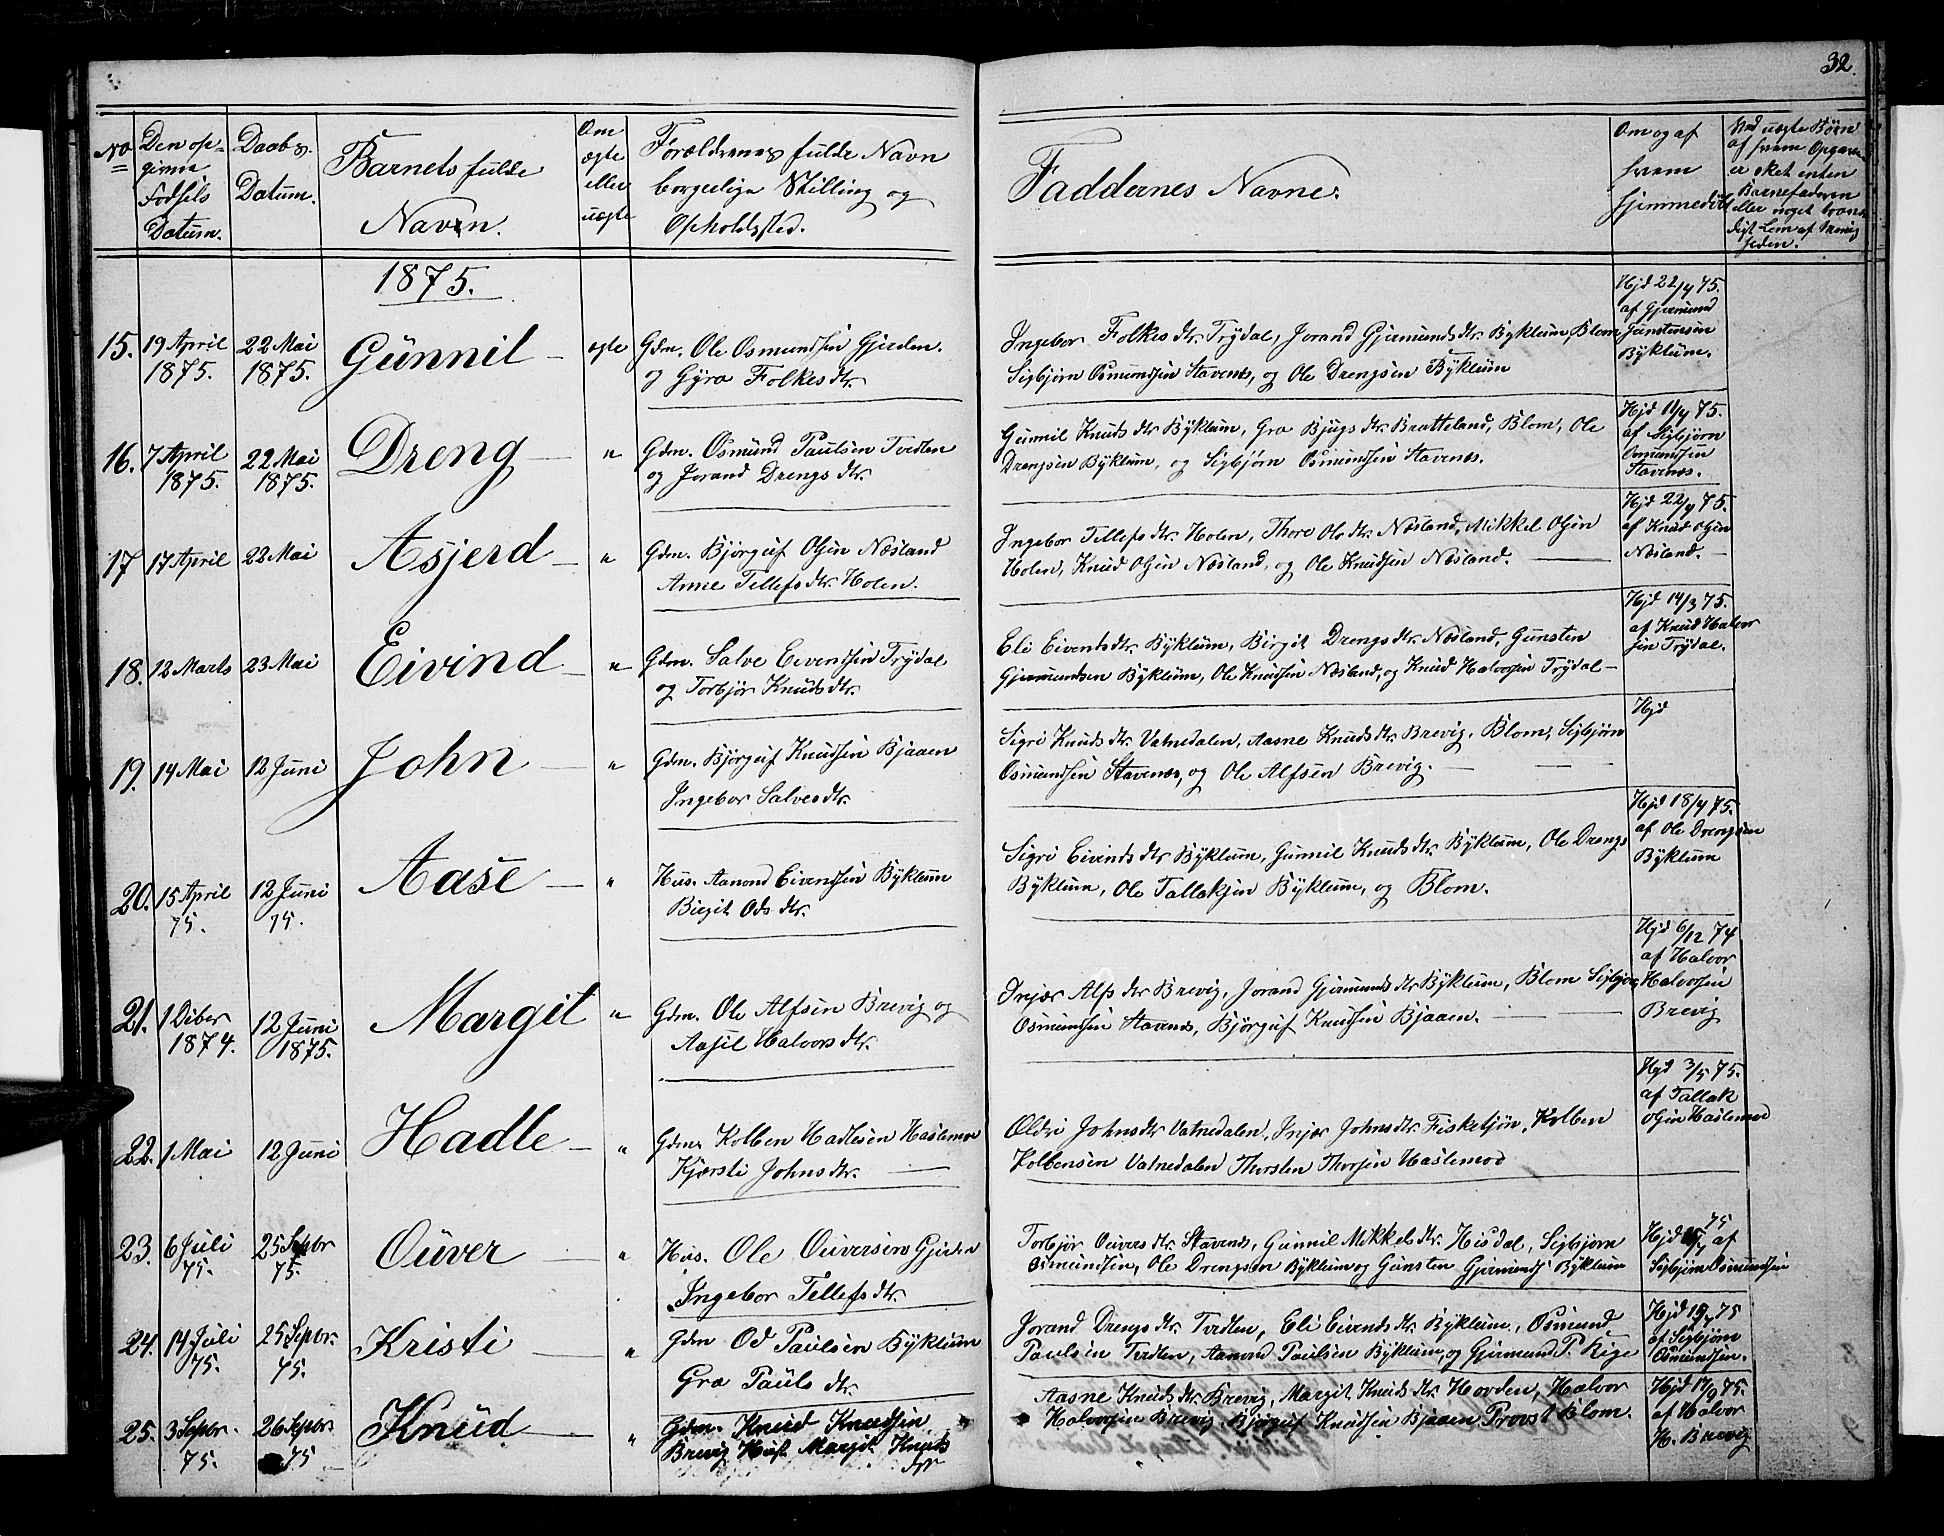 32.
No
Den op-
givne
Fødsels
Datum.
Daabs.
Datum.
Barnets fulde
Navn.
Om
ægte
eller
uægte
Forældrenes fulde Navn
borgerlige Stilling og
Opholdssted.
Faddernes Navne.
Om og af
hvem
hjemmedøbt
Ved uægte Børn
af hvem Opgaven
er sket enten
Barnefaderen
eller noget
Lem af Menig
heden.
1875.
15. 19 April 22 Mai Günnil — ægte Gdm. Ole Osmundsen Gjerden.
1875. 1875. og Gyro Folkesdtr.
Ingebor Folkesdtr. Trydal, Jorand Gjermundsdtr. Byklum, Blom
Sigbjørn Osmundsen Stavenes, og Ole Drengsen Byklum
Hjd 22/4 75.
af Gjermund
Gunstensen
Byklum.
16. 7 April 22 Mai Dreng — " Gdm. Osmund Paulsen Tvedten
1875. 1875. og Jorand Drengsdtr.
Gunnil Knudsdtr Byklum, Gro Bjugsdtr. Bratteland, Blom, Ole
Drengsen Byklum, og Sigbjørn Osmundsen Stavenes.
Hjd 11/4 75.
af Sigbjørn
Osmundsen
Stavenes.
17 17 April 22 Mai Asjerd — " Gdm. Bjørguf Olsen Næsland
Anne Tellefsdtr. Holen.
Ingebor Tellefsdtr. Holen, Thore Olsdtr. Næsland, Mikkel Olsen
Holen, Knud Olsen Næsland, og Ole Knudsen Næsland. —
Hjd 22/4 75.
af Knud Olsen
Næsland. —
18. 12 Marts 23 Mai Eivind — " Gdm. Salve Eivendsen Trydal
og Torbjør Knudsdtr.
Eli Eivendsdtr. Byklum, Birgit Drengsdtr. Næsland, Gunsten
Gjermundsen Byklum, Ole Knudsen Næsland, og Knud Halvorsen Trydal —
Hjd 14/3 75.
af Knud Halvor
sen Trydal.
19. 14 Mai 12 Juni John — " Gdm. Bjørguf Knudsen Bjaaen
Ingebor Salvesdtr.
Sigri Knudsdtr. Vatnedalen, Aasne Knudsdtr. Brevig, Blom, Sigbjørn
Osmundsen Stavenes, og Ole Alfsen Brevig. — —
Hjd
20. 15 April 12 Juni Aase — " Hus. Aamond Eivendsen Byklum
75. 75. Birgit Odsdtr.
Sigri Eivindsdtr Byklum, Gunnil Knudsdtr. Byklum, Ole Drengs
Byklum, Ole Tallaksen Byklum, og Blom.
Hjd 18/4 75.
af Ole Drengsen
Byklum
21. 1 Dcber 12 Juni Margit " Gdm. Ole Alfsen Brevig og
1874. 1875. Aasil Halvorsdtr.
Injær Alfsdtr Brevig, Jorand Gjermundsdtr Byklum, Blom Sigbjørn
Osmundsen Stavenes, Bjørguf Knudsen Bjaaen. — —
Hjd 6/12 74
af Halvor
Halvorsen
Brevig
22. 1 Mai 12 Juni Hadle — " Gdm. Kolben Hadlesen Haslemo
Kjærsti Johnsdtr. —
Oldri Johnsdtr Vatnedalen, Injær Johnsdtr. Fisketjøn, Kolben
Kolbensen Vatnedalen Thorsten Thorsen Haslemod
Hjd 3/5 75.
af Tallak
Olsen Haslemod
23. 6 Juli 25 Sepbr Ouver — " Hus. Ole Ouversen Gjerden
75. 75. Ingebor Tellefsdtr.
Torbjør Ouversdtr. Stavenes, Gunnil Mikkelsdtr. Hisdal, Sigbjørn
Osmundsen, Ole Drengsen Byklum og Gunsten Gjermunds Byklum
Hjd 75 af
Sigbjørn Osmundsen
24. 14 Juli 25 Sepbr. Kristi — " Gdm Od Paulsen Byklum
75. 75. Gro Paulsdtr.
Jorand Drengsdtr. Tvedten, Eli Eivendsdtr. Byklum, Osmund
Paulsen Tvedten, Aamond Paulsen Byklum, og Gjermund P. Rige
Hjd 75
af Sigbjørn
Osmundsen.
25. 3 Sepbr. 26 Sepbr. Knud — " Gdm. Knud Knudsen
75. 75 Brevig Hust Margit Knuds
dtr
Aasne Knudsdtr. Brevig, Margit Knudsdtr. Hovden, Halvor
Halvorsen Brevig, Bjørguf Knudsen Bjaaen Provst Blom.
Hjd 17/9 75.
af Halvor
H. Brevig